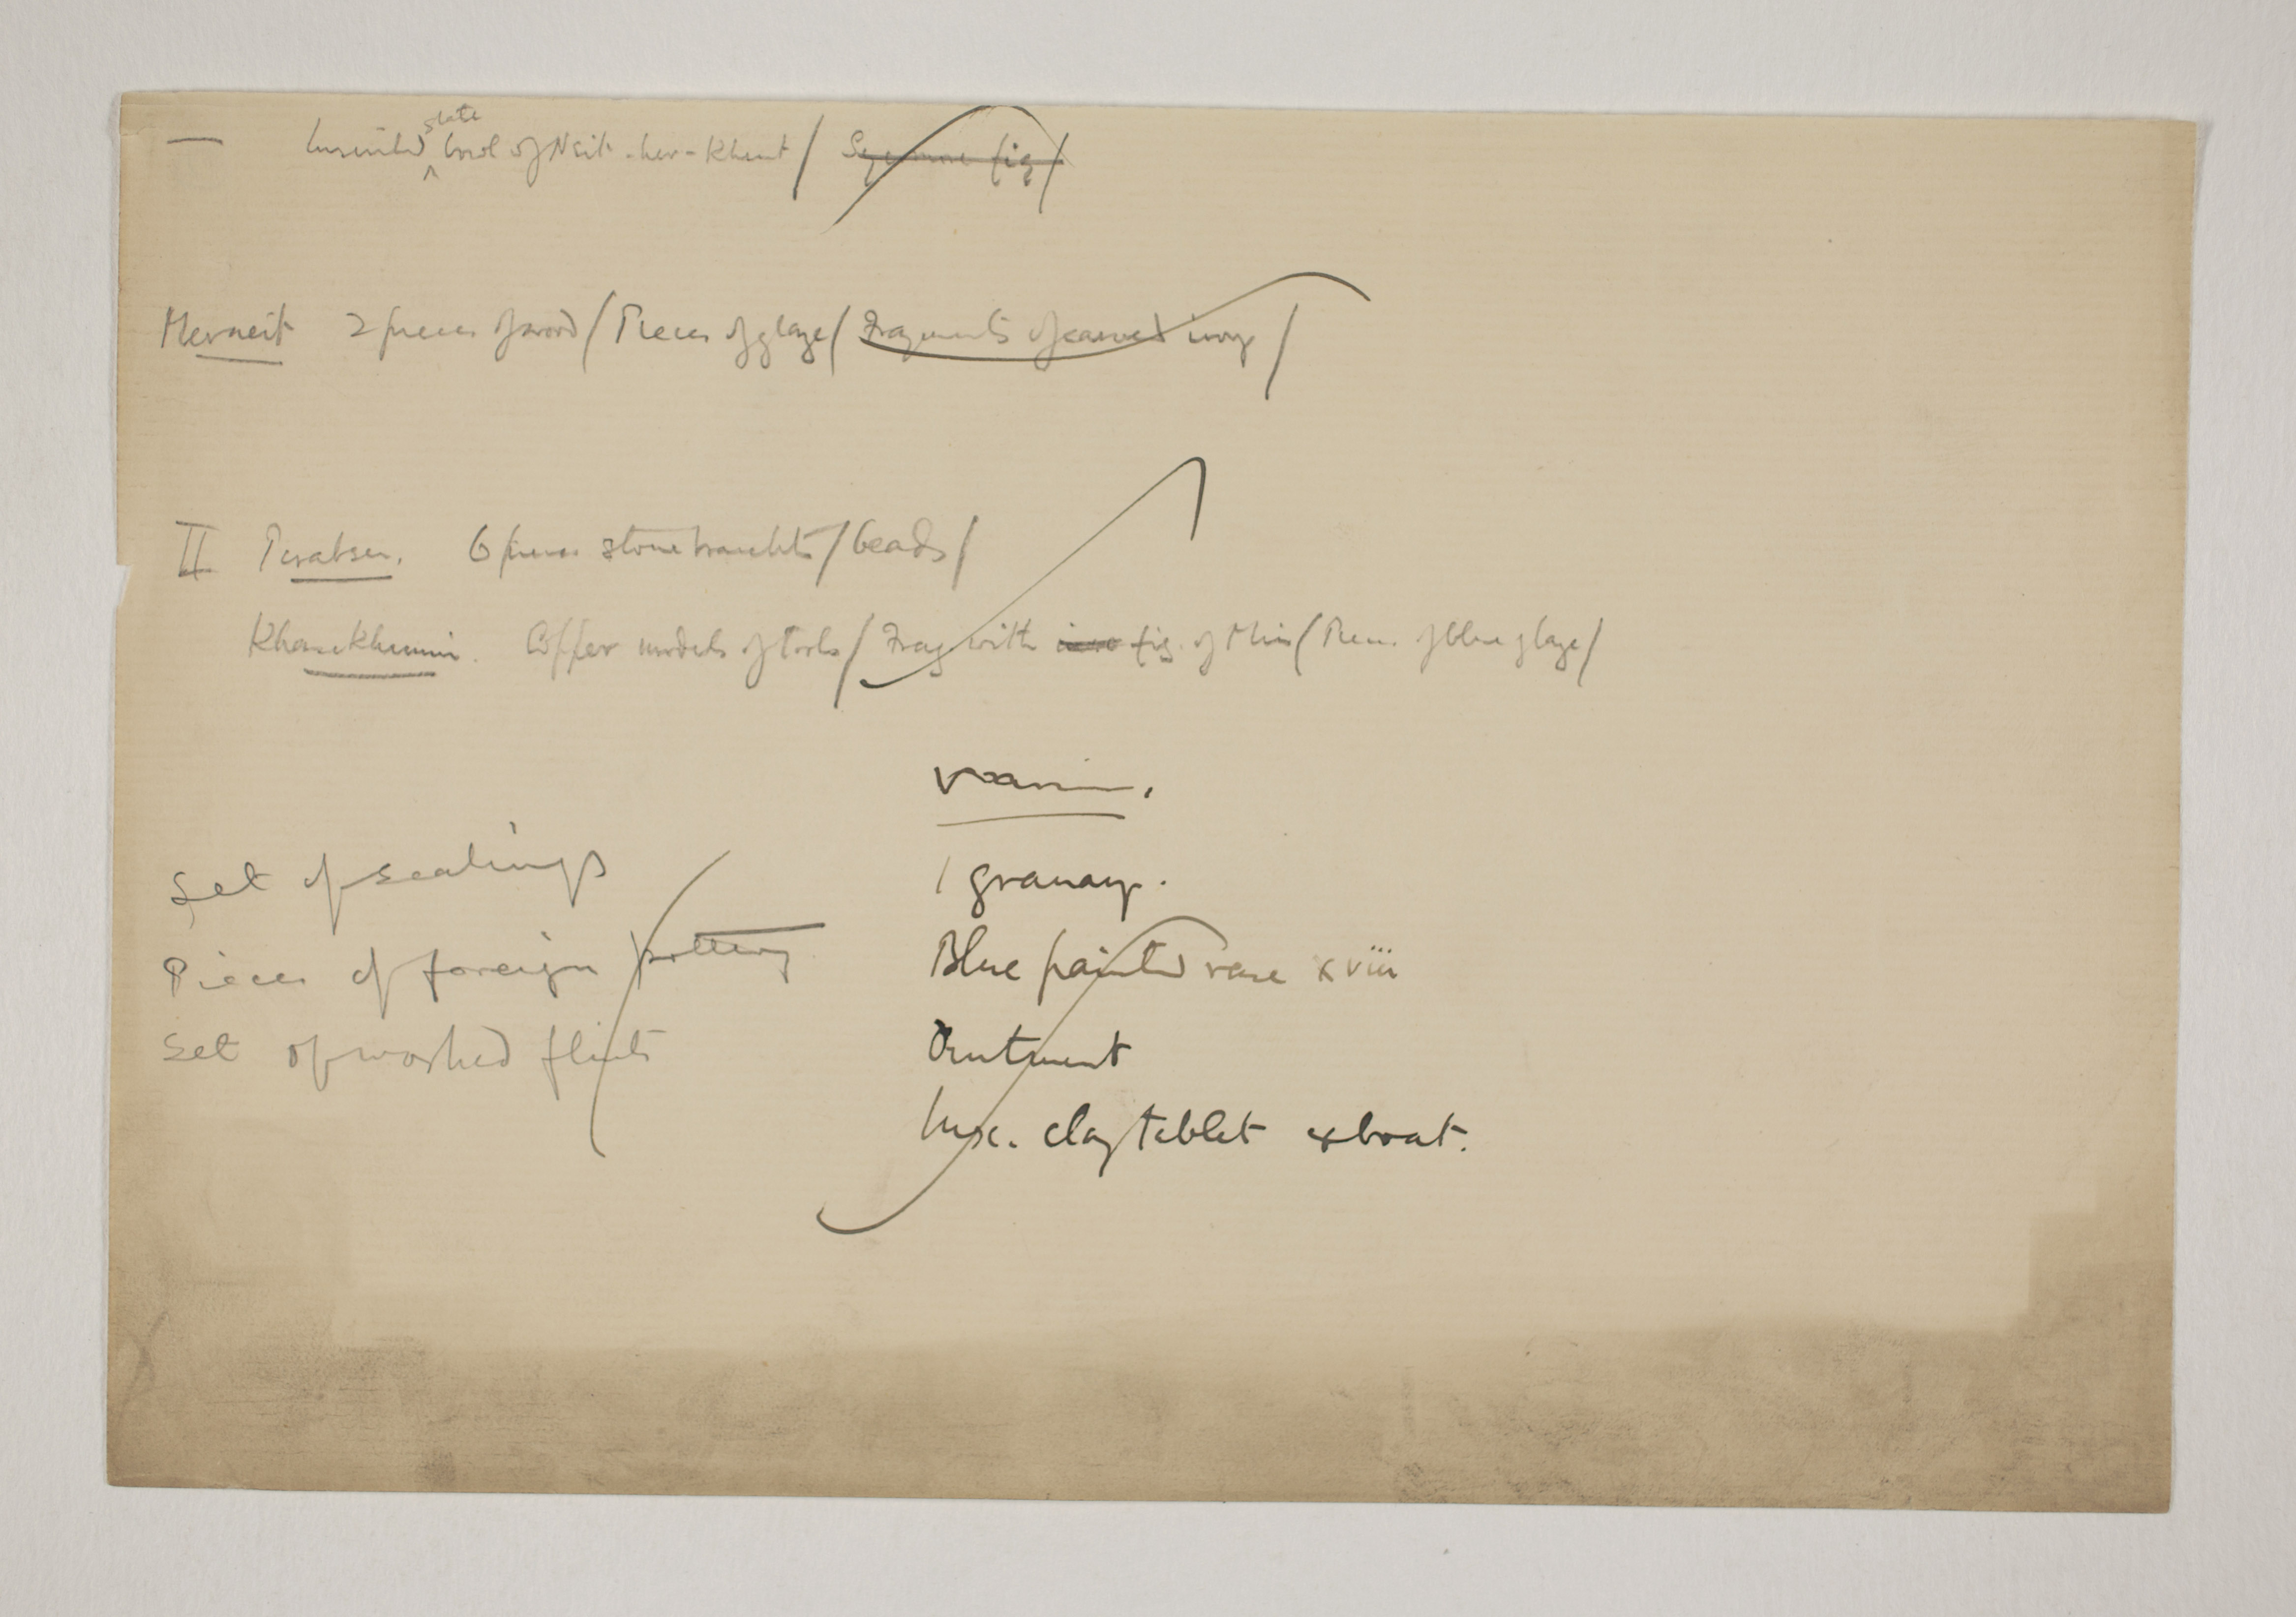 — Inscribed slate bowl of Neit-her-Khent / fig /
Merneit 2 pieces of wood / Pieces of glaze / Fragments of carved ivory /
II Perabsen. 6 pieces stone bracelets / beads /
Khasekhemui. Copper models of tools / Frag with fig. of Min / Piece of blue glaze /
Varia.
Set of sealings
Pieces of foreign pottery
Set of worked flints
1 granary.
Blue painted vase xviii
Ointment
Insc. clay tablet & boat.